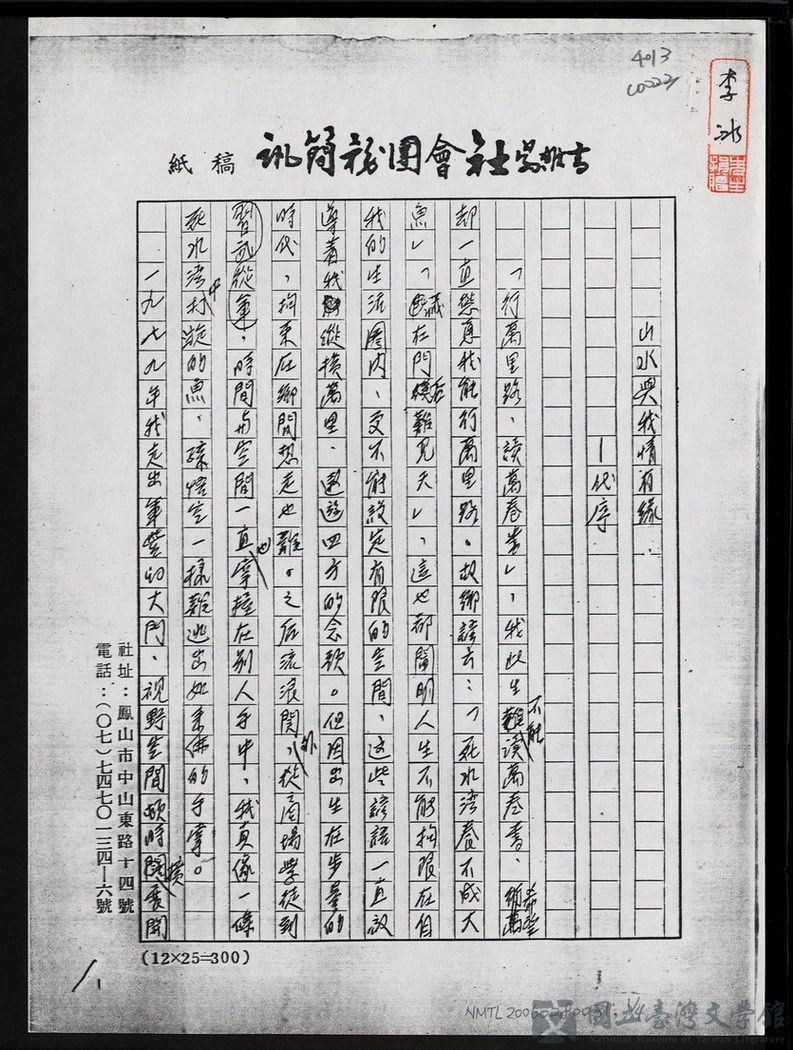 4013
C0223
李冰
先生
捐贈
社會團務簡訊 稿紙
山水與我情有緣
—代序
「行萬里路、讀萬卷書」,我此生不能讀萬卷書、希望
却一直慫恿我能行萬里路。故鄉諺云:「死水湾養不成大
魚」、「藏在門後難見天」、這也都闡明人生不能拘限在自
我的生活圈內、又不能設定有限的空間、这些諺語一直誘
導着我縱橫萬里、遨遊四方的念頭。但因出生在步量的
時代,拘束在鄉間想走也難。之后流浪關外、從商場學徒到
習武從軍,時間与空間一直也掌握在別人手中,我真像一條
死水湾中村游的魚,孫悟空一樣難逃出如來佛的手掌。
一九七九年我走出軍營的大門、視野空間頓時橫展開
社址:鳳山市中山東路十四號
電話:(〇七)七四七〇一三四—六號
(12×25=300)
1
NMTL200602
國立臺灣文學館
National Museum of Taiwan Literature